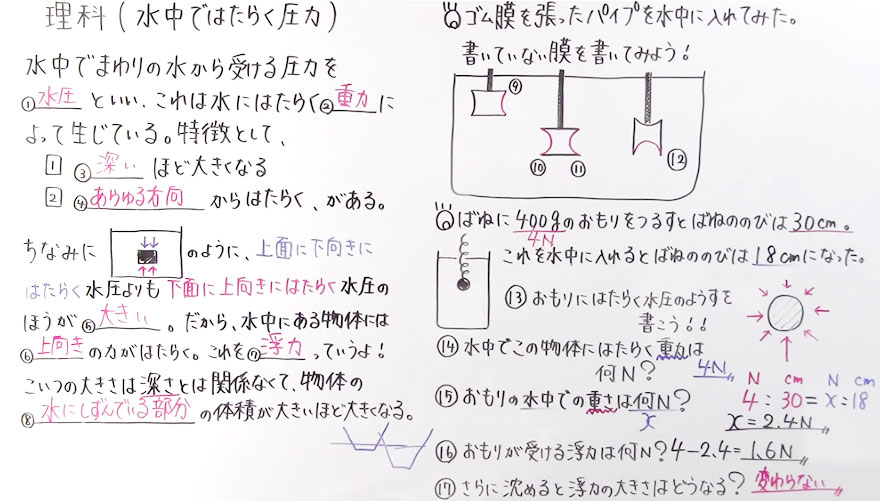 理科(水中ではたらく圧力)
水中でまわりの水から受ける圧力を
①水圧といい、これは水にはたらく②重力に
よって生じている。特徴として、
1 ③深いほど大きくなる
2 ④あらゆる方向からはたらく、がある。
ちなみに のように、上面に下向きに
はたらく水圧よりも下面に上向きにはたらく水圧の
ほうが⑤大きい。だから、水中にある物体には
⑥上向きの力がはたらく。これを⑦浮力っていうよ!
こいつの大きさは深さとは関係なくて、物体の
⑧水にしずんでいる部分の体積が大きいほど大きくなる。
ゴム膜を張ったパイプを水中に入れてみた。
書いていない膜を書いてみよう!
⑨
⑩ ⑪ ⑫
ばねに400gのおもりをつるすとばねののびは30cm。
4N
これを水中に入れるとばねののびは18cmになった。
⑬おもりにはたらく水圧のようすを
書こう!!
⑭水中でこの物体にはたらく重力は
何N? 4N
⑮おもりの水中での重さは何N?
x
N cm N cm
4:30=x:18
x=2.4N
⑯おもりが受ける浮力は何N?4-2.4=1.6N
⑰さらに沈めると浮力の大きさはどうなる?変わらない